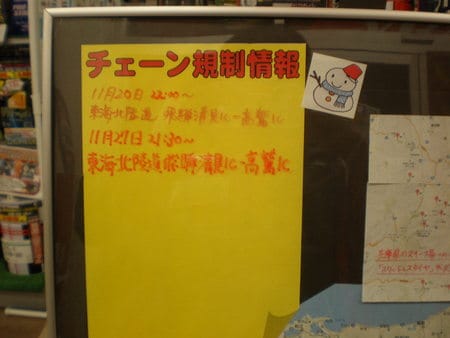 チェーン規制情報
11月20日 22:00～
東海北陸道 飛騨清見IC-高鷲IC
11月27日 21:30～
東海北陸道 飛騨清見IC-高鷲IC
「スタッドレスタイヤ」